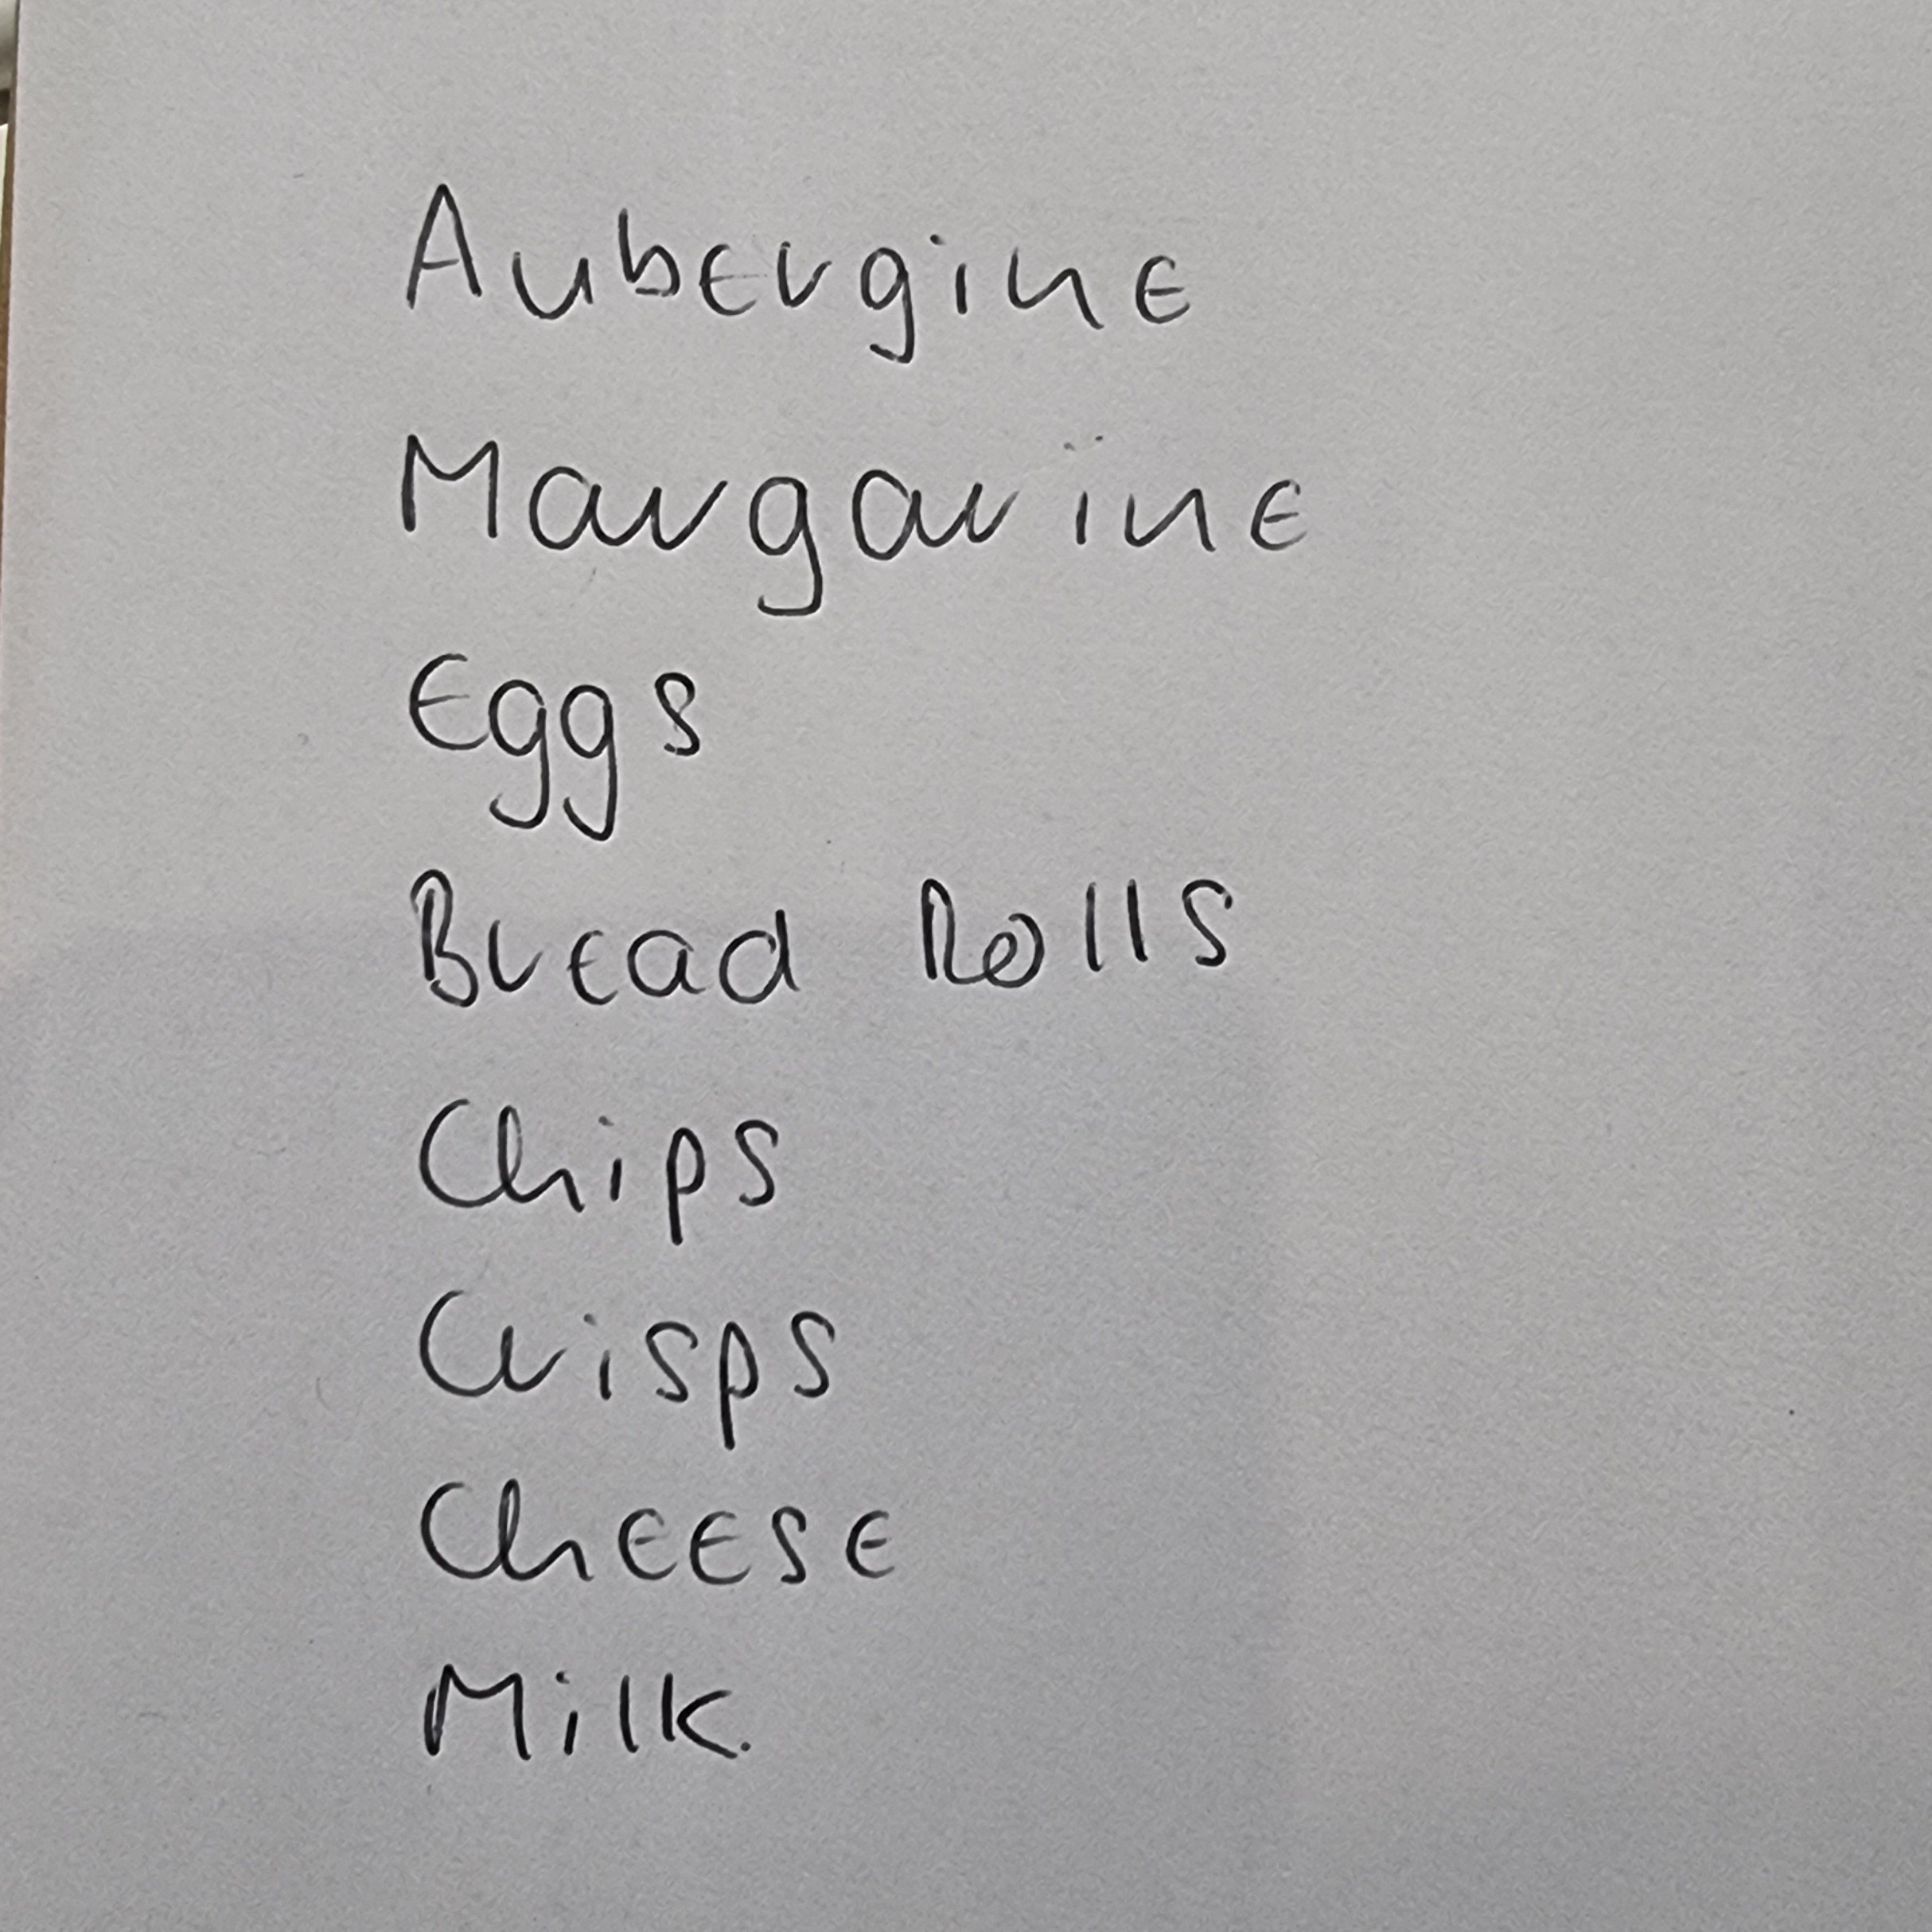 Aubergine
Margarine
Eggs
Bread Rolls
Chips
Crisps
Cheese
Milk.